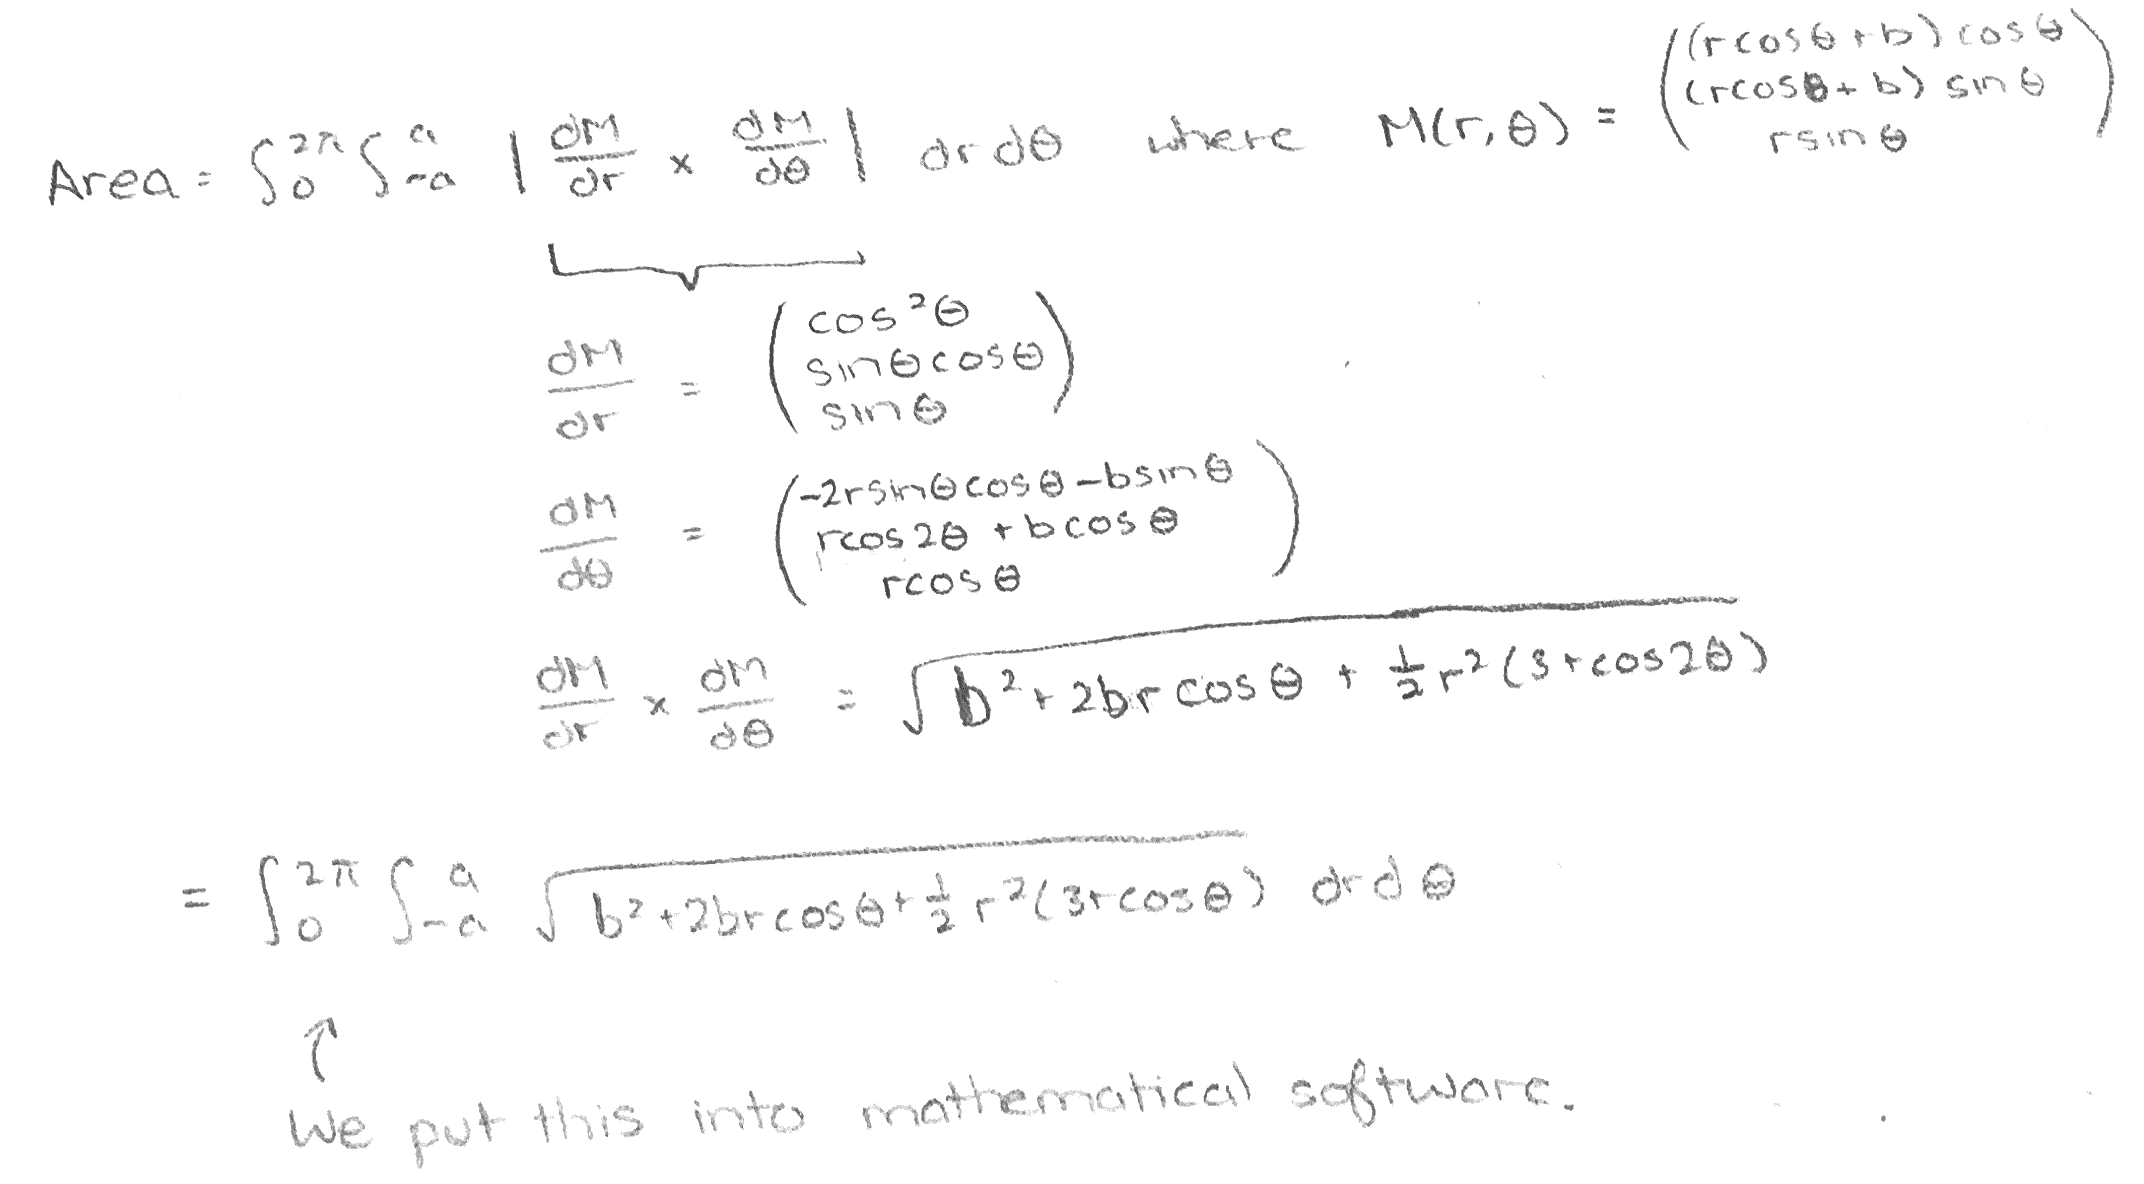 Area = ∫₀^2π ∫₋ₐ^a | dM/dr × dM/dθ | dr dθ where M(r, θ) = ( (rcosθ + b) cosθ
(rcosθ + b) sinθ
rsinθ )
dM/dr = ( cos²θ
sinθcosθ
sinθ )
dM/dθ = ( -2rsinθcosθ - bsinθ
rcos2θ + bcosθ
rcosθ )
dM/dr × dM/dθ = √(b² + 2br cosθ + 1/2 r² (3 + cos2θ))
= ∫₀^2π ∫₋ₐ^a √(b² + 2brcosθ + 1/2 r² (3 + cosθ)) dr dθ
↑
We put this into mathematical software.